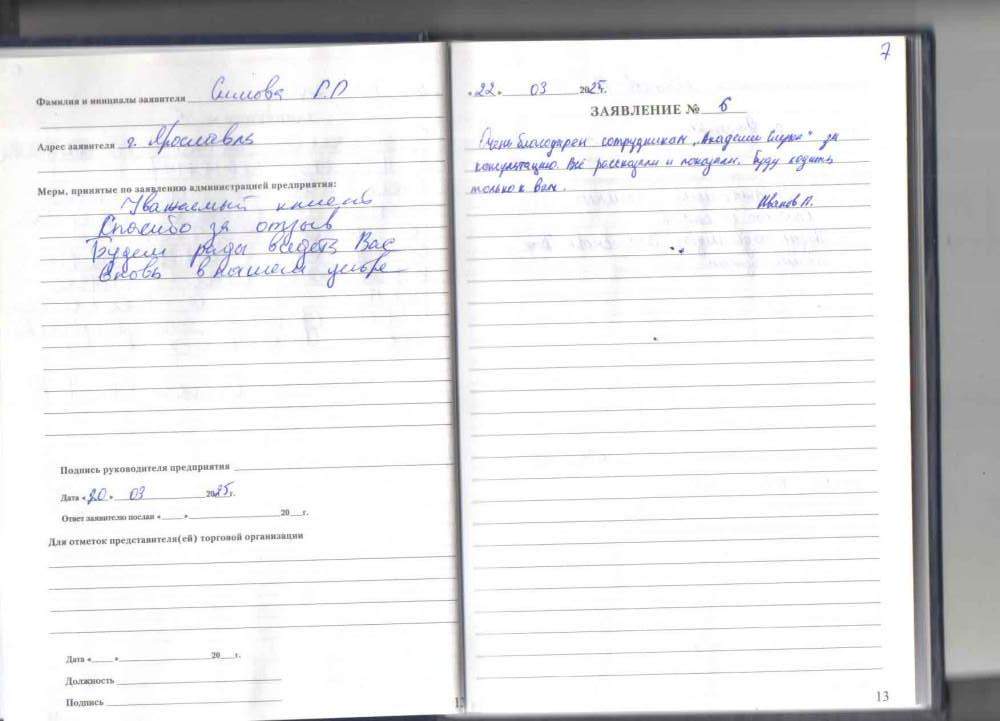 Фамилия и инициалы заявителя Симова Г.П
Адрес заявителя г. Ярославль
Меры, принятые по заявлению администрацией предприятия:
Уважаемый клиент
Спасибо за отзыв
Будем рады видеть Вас
вновь в нашем центре
Подпись руководителя предприятия
Дата «20» 03 2025г.
Ответ заявителю послан «___» ___ 20__г.
Для отметок представителя(ей) торговой организации
Дата «___» ___ 20__г.
Должность
Подпись
7
«22» 03 2025г.
ЗАЯВЛЕНИЕ № 6
Очень благодарен сотрудникам „Академии Слуха" за
консультацию. Всё рассказали и показали. Буду ходить
только к вам.
Иванов П.
13